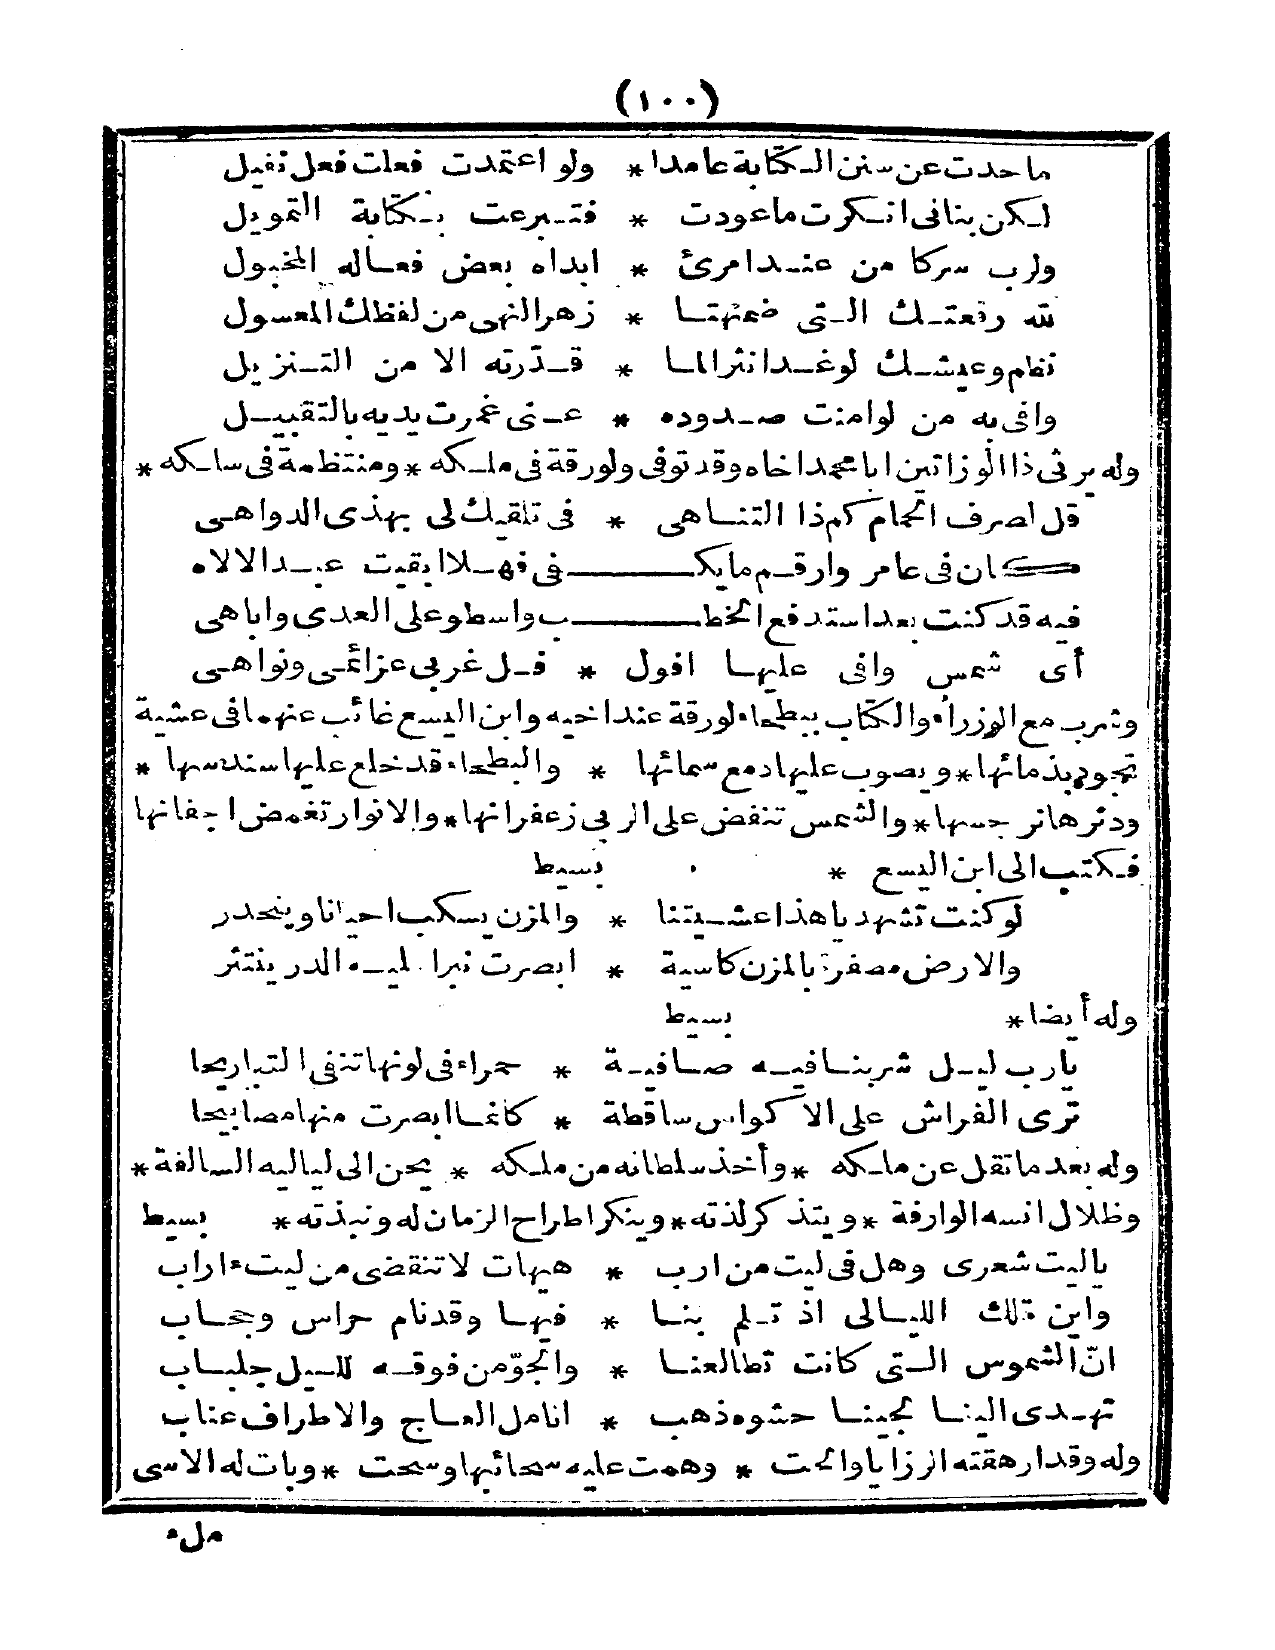 (١٠٠)
ما حدت عن سنن الكتابة عامدا * ولو اعتمدت فعلت فعل نفيل
لكن بنانى انكرت ما عودت * فتبرعت بكتابة التمويل
ولرب سركا من عند امرئ * ابداه بعض فعاله المخبول
لله رقعتك التى ضمنتها * زهر النهى من لفظك المعسول
نظم وعيشك لو غدا نثرا لما * قدّرته الا من التنزيل
وافى به من لو امنت صدوده * عنى غمرت يديه بالتقبيل
وله يرثى ذا الوزاتين ابا محمد اخاه وقد توفى ولورقة فى ملكه * ومنتظمة فى سلكه *
قل لصرف الحمام كم ذا التناهى * فى تلقيك لى بهذى الدواهى
كان فى عامر وارقم ما يكفى فهلا ابقيت عبد الالاه
فيه قد كنت بعد استدفع الخطب واسطو على العدى واباهى
أى شمس وافى عليها افول * فل غربى عزائمى ونواهى
وشرب مع الوزراء والكتاب ببطحاء لورقة عند اخيه وابن اليسع غائب عنهما فى عشية
تجود بذمائها * ويصوب عليها دمع سمائها * والبطحاء قد خلع عليها سندسها *
ودثرها نرجسها * والشمس تنفض على الربى زعفرانها * والانوار تغمض اجفانها
فكتب الى ابن اليسع * بسيط
لو كنت تشهد يا هذا عشيتنا * والمزن يسكب احيانا وينحدر
والارض مصفرة بالمزن كاسية * ابصرت تبرا عليه الدر ينتثر
وله أيضا * بسيط
يا رب ليل شربنا فيه صافية * حمراء فى لونها تنفى التباريحا
ترى الفراش على الاكواس ساقطة * كانما ابصرت منها مصابيحا
وله بعد ما تقل عن ملكه * وأخذ سلطانه من ملكه * يحن الى لياليه السالفة *
وظلال انسه الوارفة * ويتذكر لذته * وينكر اطراح الزمان له ونبذته * بسيط
ياليت شعرى وهل فى ليت من ارب * هيهات لا تنقضى من ليت ءاراب
واين تلك الليالى اذ تلم بنا * فيها وقد نام حراس وحجاب
انّ الشموس التى كانت تطالعنا * والجوّ من فوقه لليل جلباب
تهدى الينا لجينا حشوه ذهب * انامل العاج والاطراف عناب
وله وقد ارهقته الرزايا والحت * وهمت عليه سحائبها وسحت * وبات له الاسى
مل